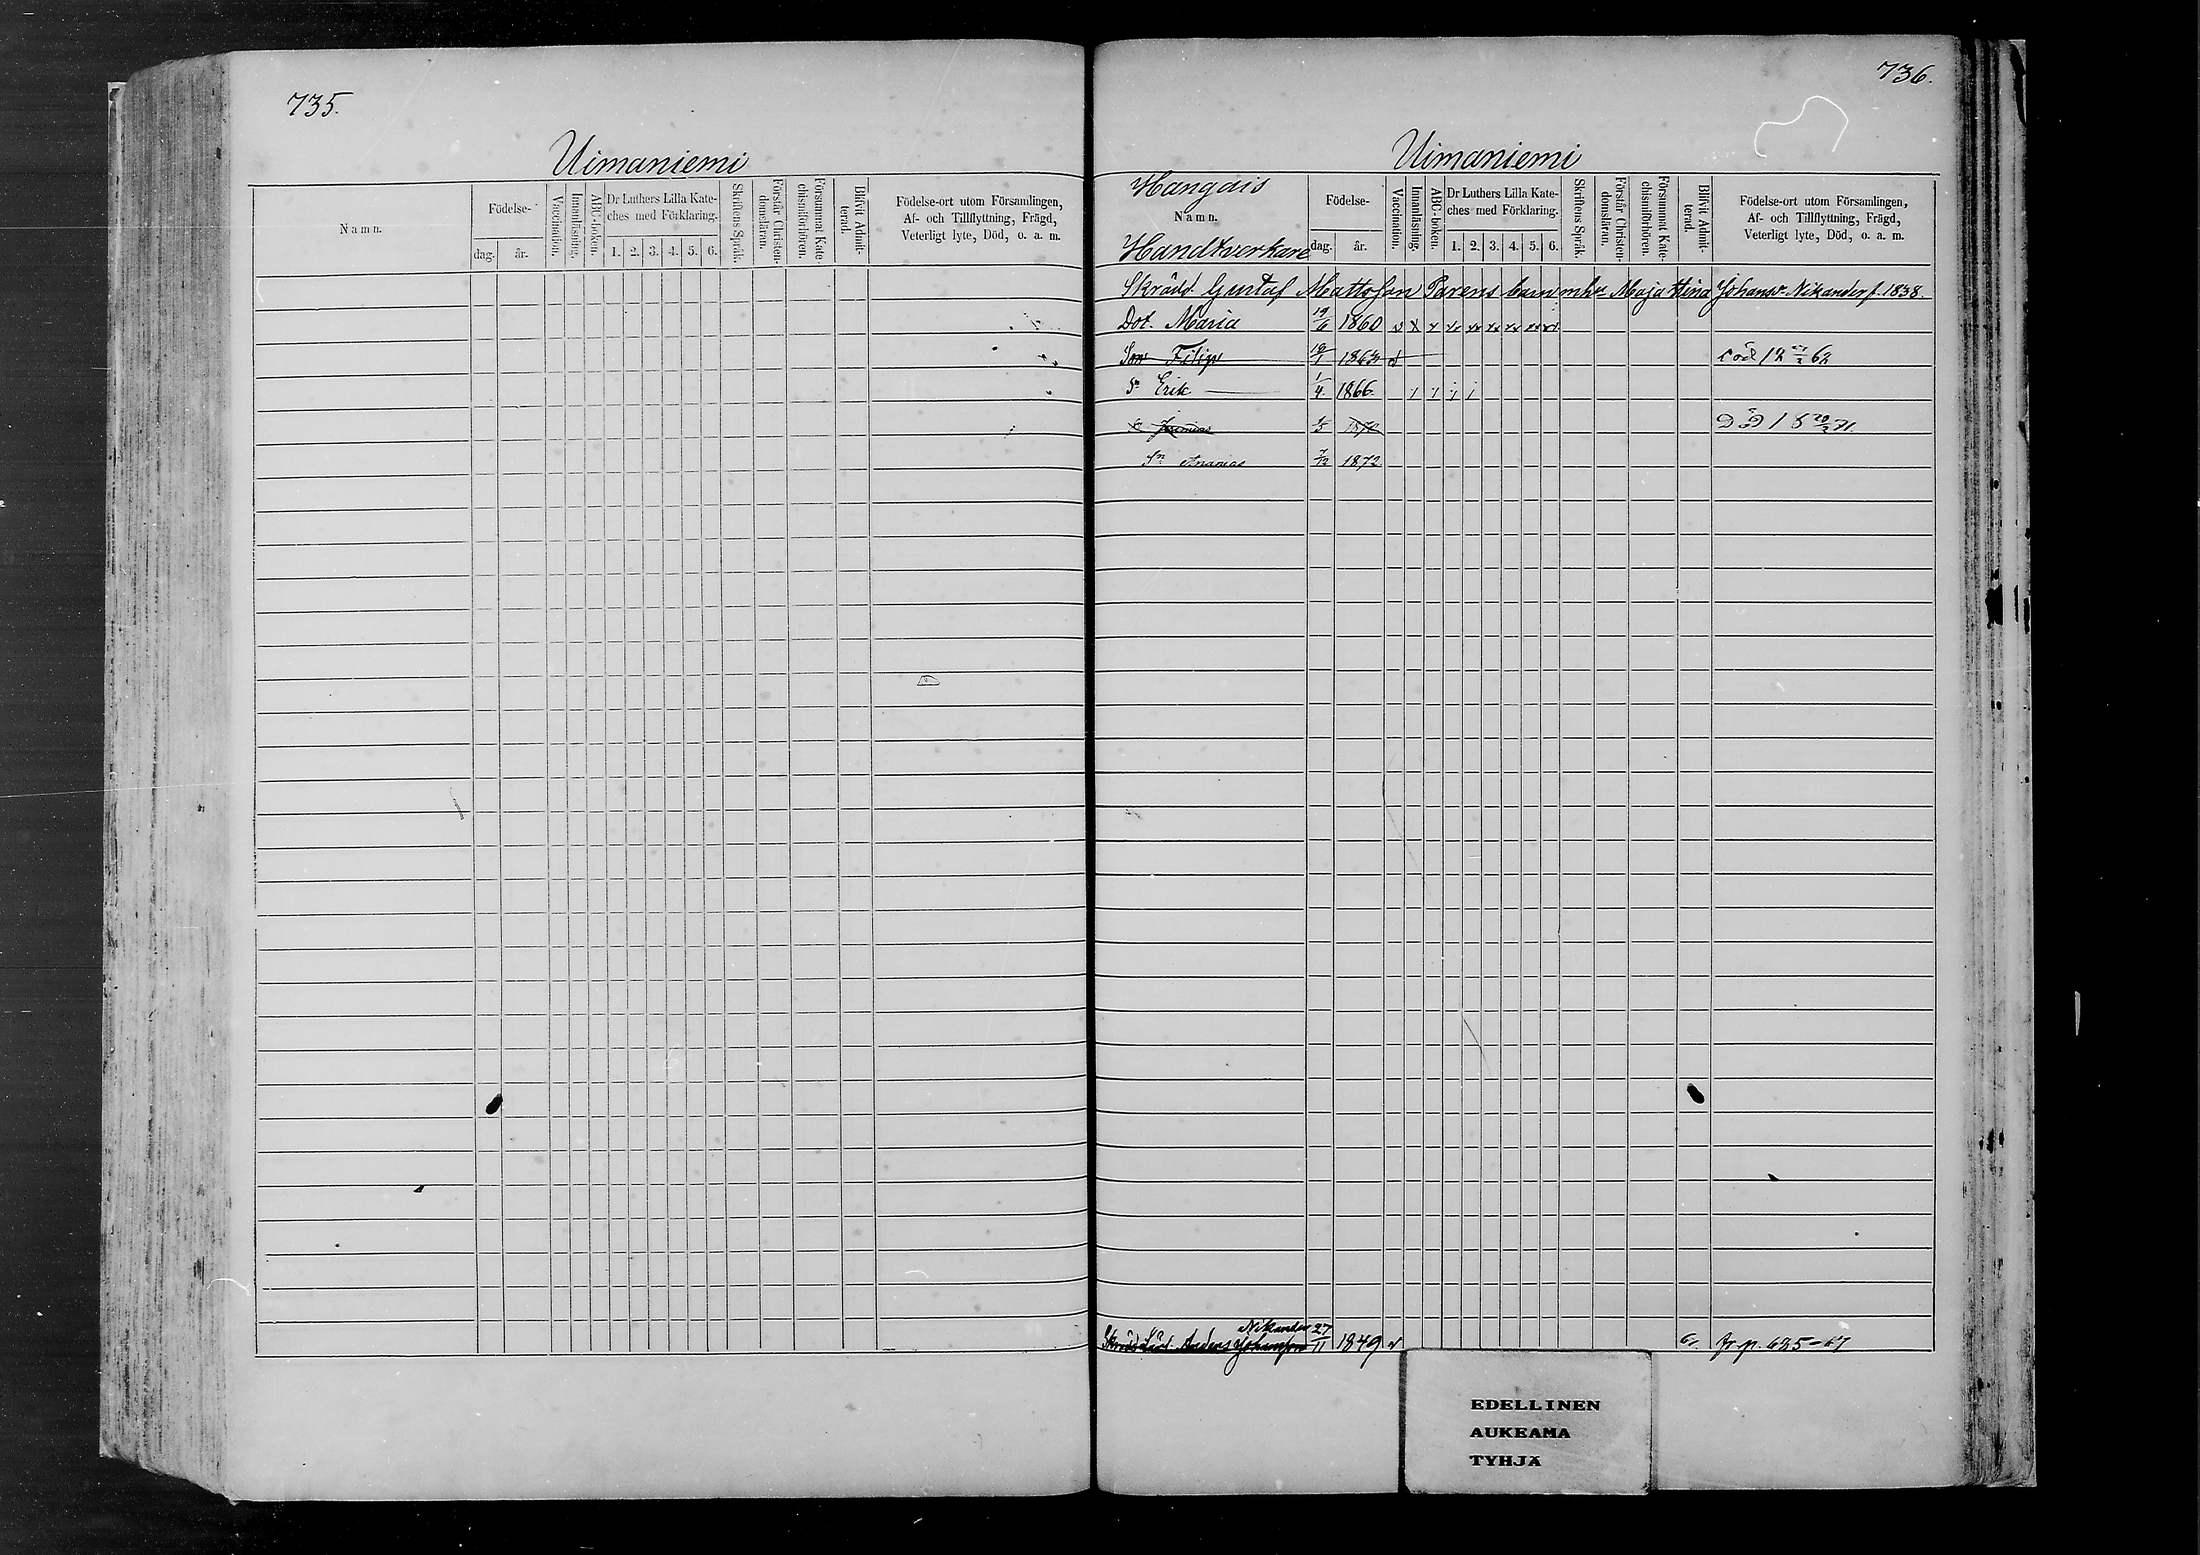 735.
Uimaniemi
Namn.
Födelse-
dag.
år.
Vaccination.
Innanläsning.
ABC-boken.
Dr Luthers Lilla Kate-
ches med Förklaring.
1. 2. 3. 4. 5. 6.
Skriftens Språk.
Förstår Christen-
domsläran.
Försummat Kate-
chismiförhören.
Blifvit Admit-
terad.
Födelse-ort utom Församlingen,
Af- och Tillflyttning, Frägd,
Veterligt lyte, Död, o. a. m.
736.
Uimaniemi
Hangais
Namn.
Handtverkare
Födelse-
dag.
år.
Vaccination.
Innanläsning.
ABC-boken.
Dr Luthers Lilla Kate-
ches med Förklaring.
1. 2. 3. 4. 5. 6.
Skriftens Språk.
Förstår Christen-
domsläran.
Försummat Kate-
chismiförhören.
Blifvit Admit-
terad.
Födelse-ort utom Församlingen,
Af- och Tillflyttning, Frägd,
Veterligt lyte, Död, o. a. m.
Skrädd. Gustaf Mattsson Parens barn mhu Maja Stina Johansr Nikander f. 1838.
Dot. Maria 19/6 1860 v x
Son Filip 18/1 v
Sn Erik 1/4 1866
Sn Ananias 7/12 1872
Nikander
Anders Johansson 27/11 1849 v fr p. 625-67
EDELLINEN
AUKEAMA
TYHJÄ